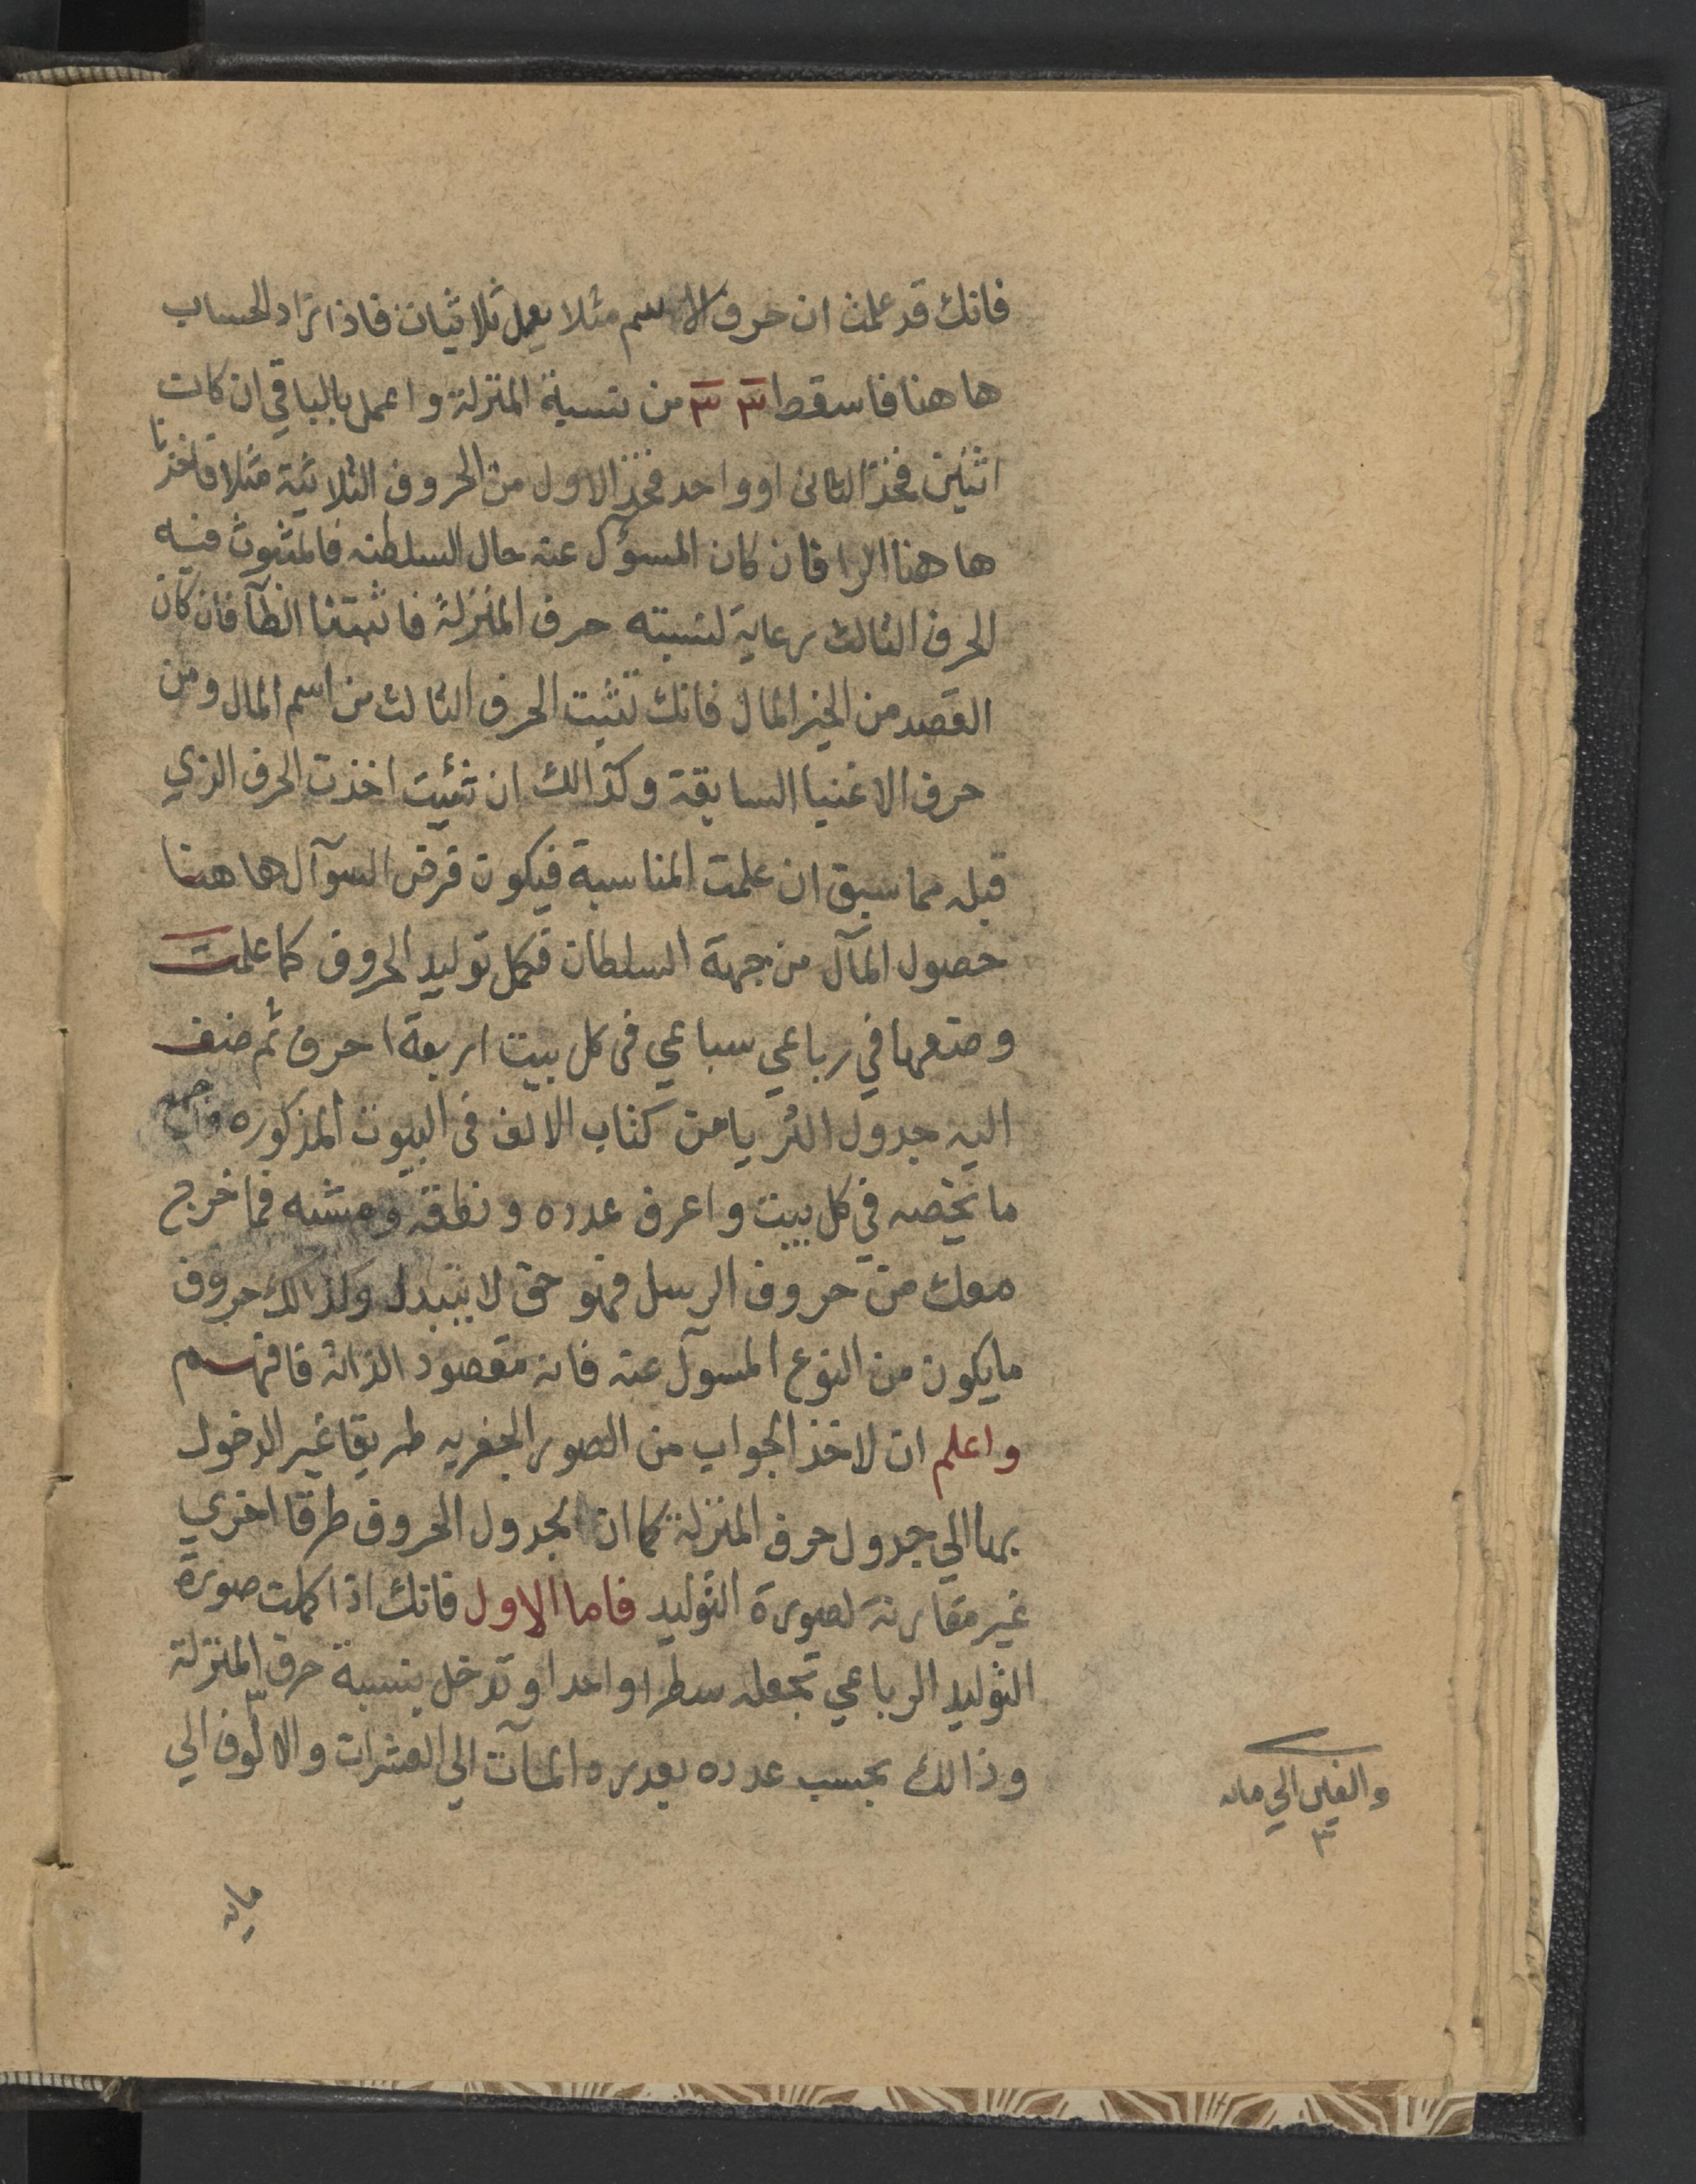 فانك قد علمت ان حرف الاسم مثلا يعمل ثلاثيات فاذا تزاد الحساب
هاهنا فاسقط ٣ ٣ من نسبة المنزلة واعمل بالباقي ان كانت
اثنين فخذ الثاني او واحد فخذ الاول من الحروف الثلاثية مثلا فاخذنا
هاهنا الرا فان كان المسؤل عنه حال السلطنه فالمثبوت فيه
الحرف الثالث رعاية لنسبته حرف المنزلة فاثبتنا الطآ فان كان
القصد من الخبر المال فانك تثبت الحرف الثالث من اسم المال ومن
حرف الاغنيا السابقة وكذالك ان شئيت اخذت الحرف الذي
قبله مما سبق ان علمت المناسبة فيكون فرض السوآل هاهنا
حصول المآل من جهة السلطان فكمل توليد الحروف كما علمت
وضعها في رباعي سباعي في كل بيت اربعة احرف ثم ضف
اليه جدول الثريا من كتاب الالف في البيوت المذكوره
ما يخصه في كل بيت واعرف عدده ونطقه فما خرج
معك من حروف الرسل فهو حق لا يتبدل وكذالك حروف
مايكون من النوع المسوآل عنه فانه مقصود الذاته فافهم
واعلم ان لاخذ الجواب من الصور الجفريه طريقا غير الدخول
بها الي جدول حرف المنزلة كما ان لجدول الحروف طرقا اخري
غير مقارنة لصورة التوليد فاما الاول فانك اذا كملت صورة
التوليد الرباعي تجعله سطرا واحدا وتدخل بنسبة حرف المنزلة
وذالك بحسب عدده بعد رد المآت الي العشرات والالوف الي
والفين الي مايه
مايه